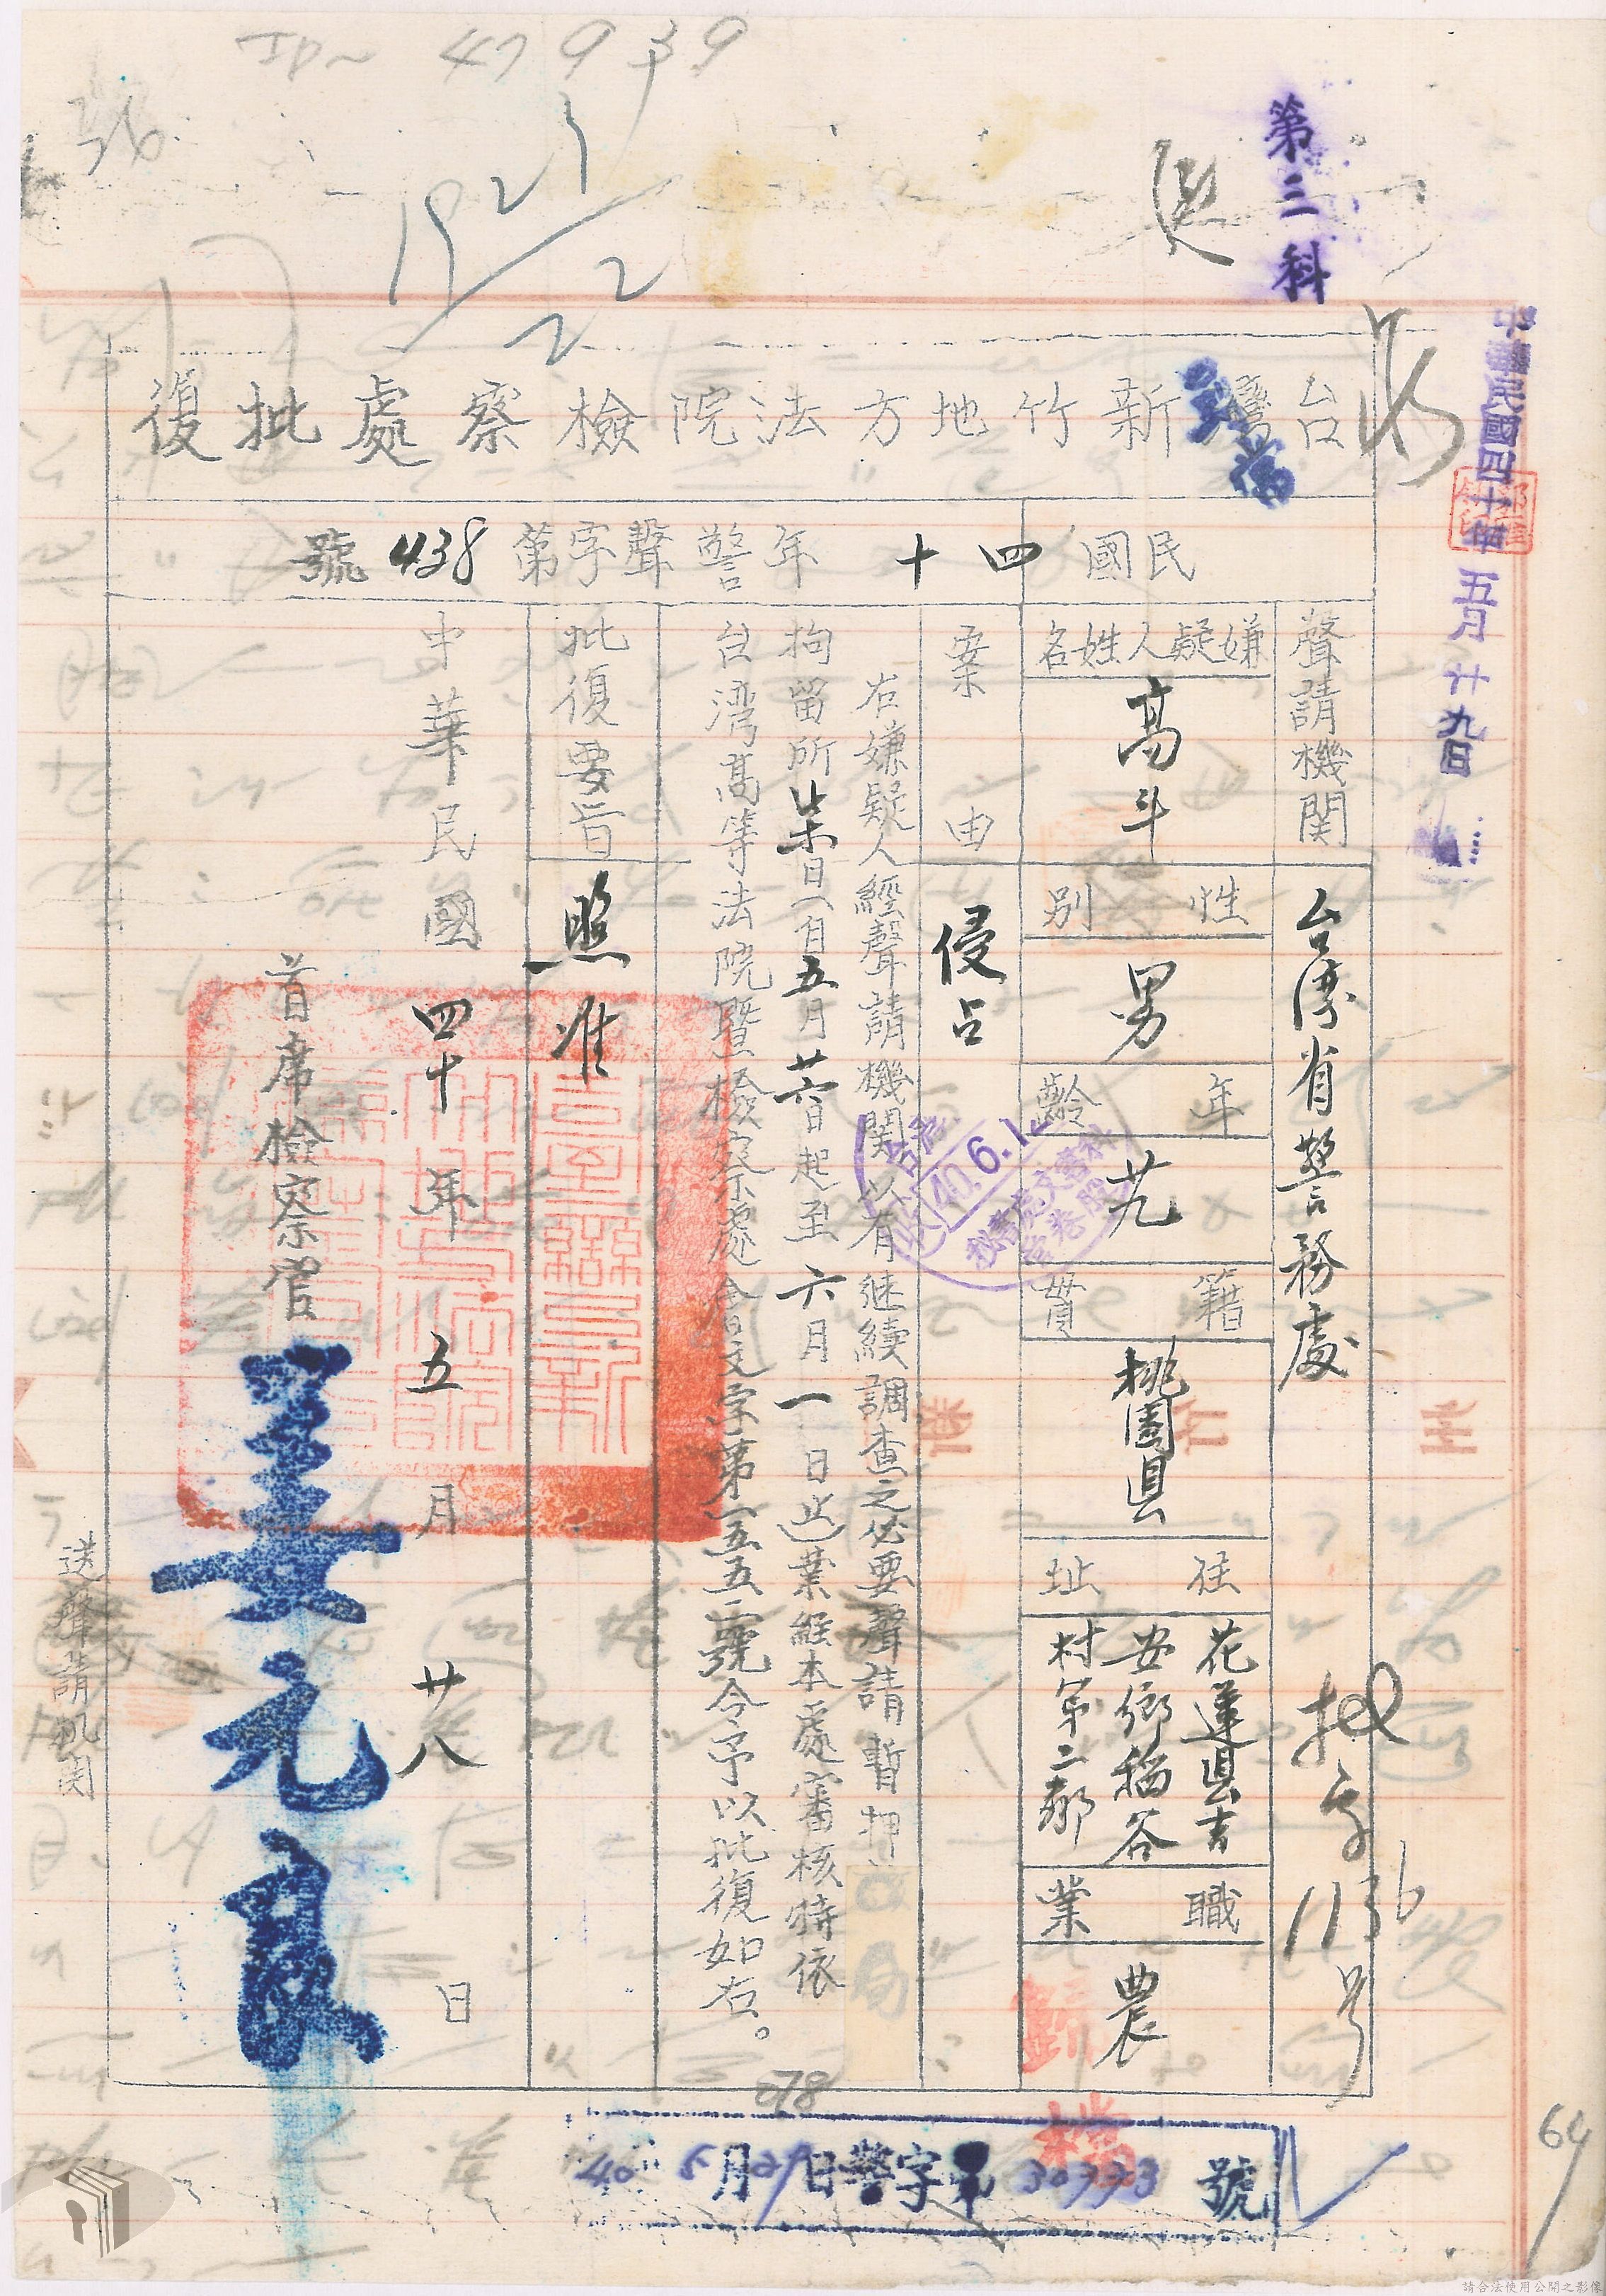 47939
第三科
中華民國四十年五月廿九日
台灣新竹地方法院檢察處批復
民國四十年警聲字第438號
聲請機関
台湾省警務處
批字1136号
嫌疑人姓名
高斗
性別
男
年齡
籍貫
桃園县
住址
花蓮县吉
安鄉稲谷
村第二鄰
職業
農
案由
侵占
右嫌疑人經聲請機関以有継續調查之必要聲請暫押
拘留所柒日(自五月廿六日起至六月一日止)業經本處審核特依
台湾高等法院暨檢察處會文字第一五五一號令予以批復如右。
批復要旨
照准
中華民國四十年五月廿八日
首席檢察官
姜元良
送聲請机関
40.6.1
歸檔
078
40年5月29日警字第30773號
64
請合法使用公開之影像